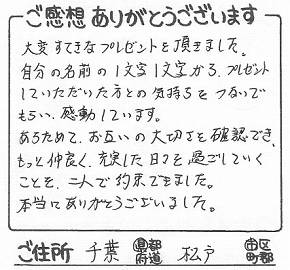 ご感想ありがとうございます
大変すてきなプレゼントを頂きました。
自分の名前の1文字1文字から、プレゼント
していただいた方との気持ちをつないで
もらい、感動しています。
あらためて、お互いの大切さを確認でき、
もっと仲良く、充実した日々を過ごしていく
ことを、二人で約束できました。
本当にありがとうございました。
ご住所 千葉 都道府県 松戸 市区町郡